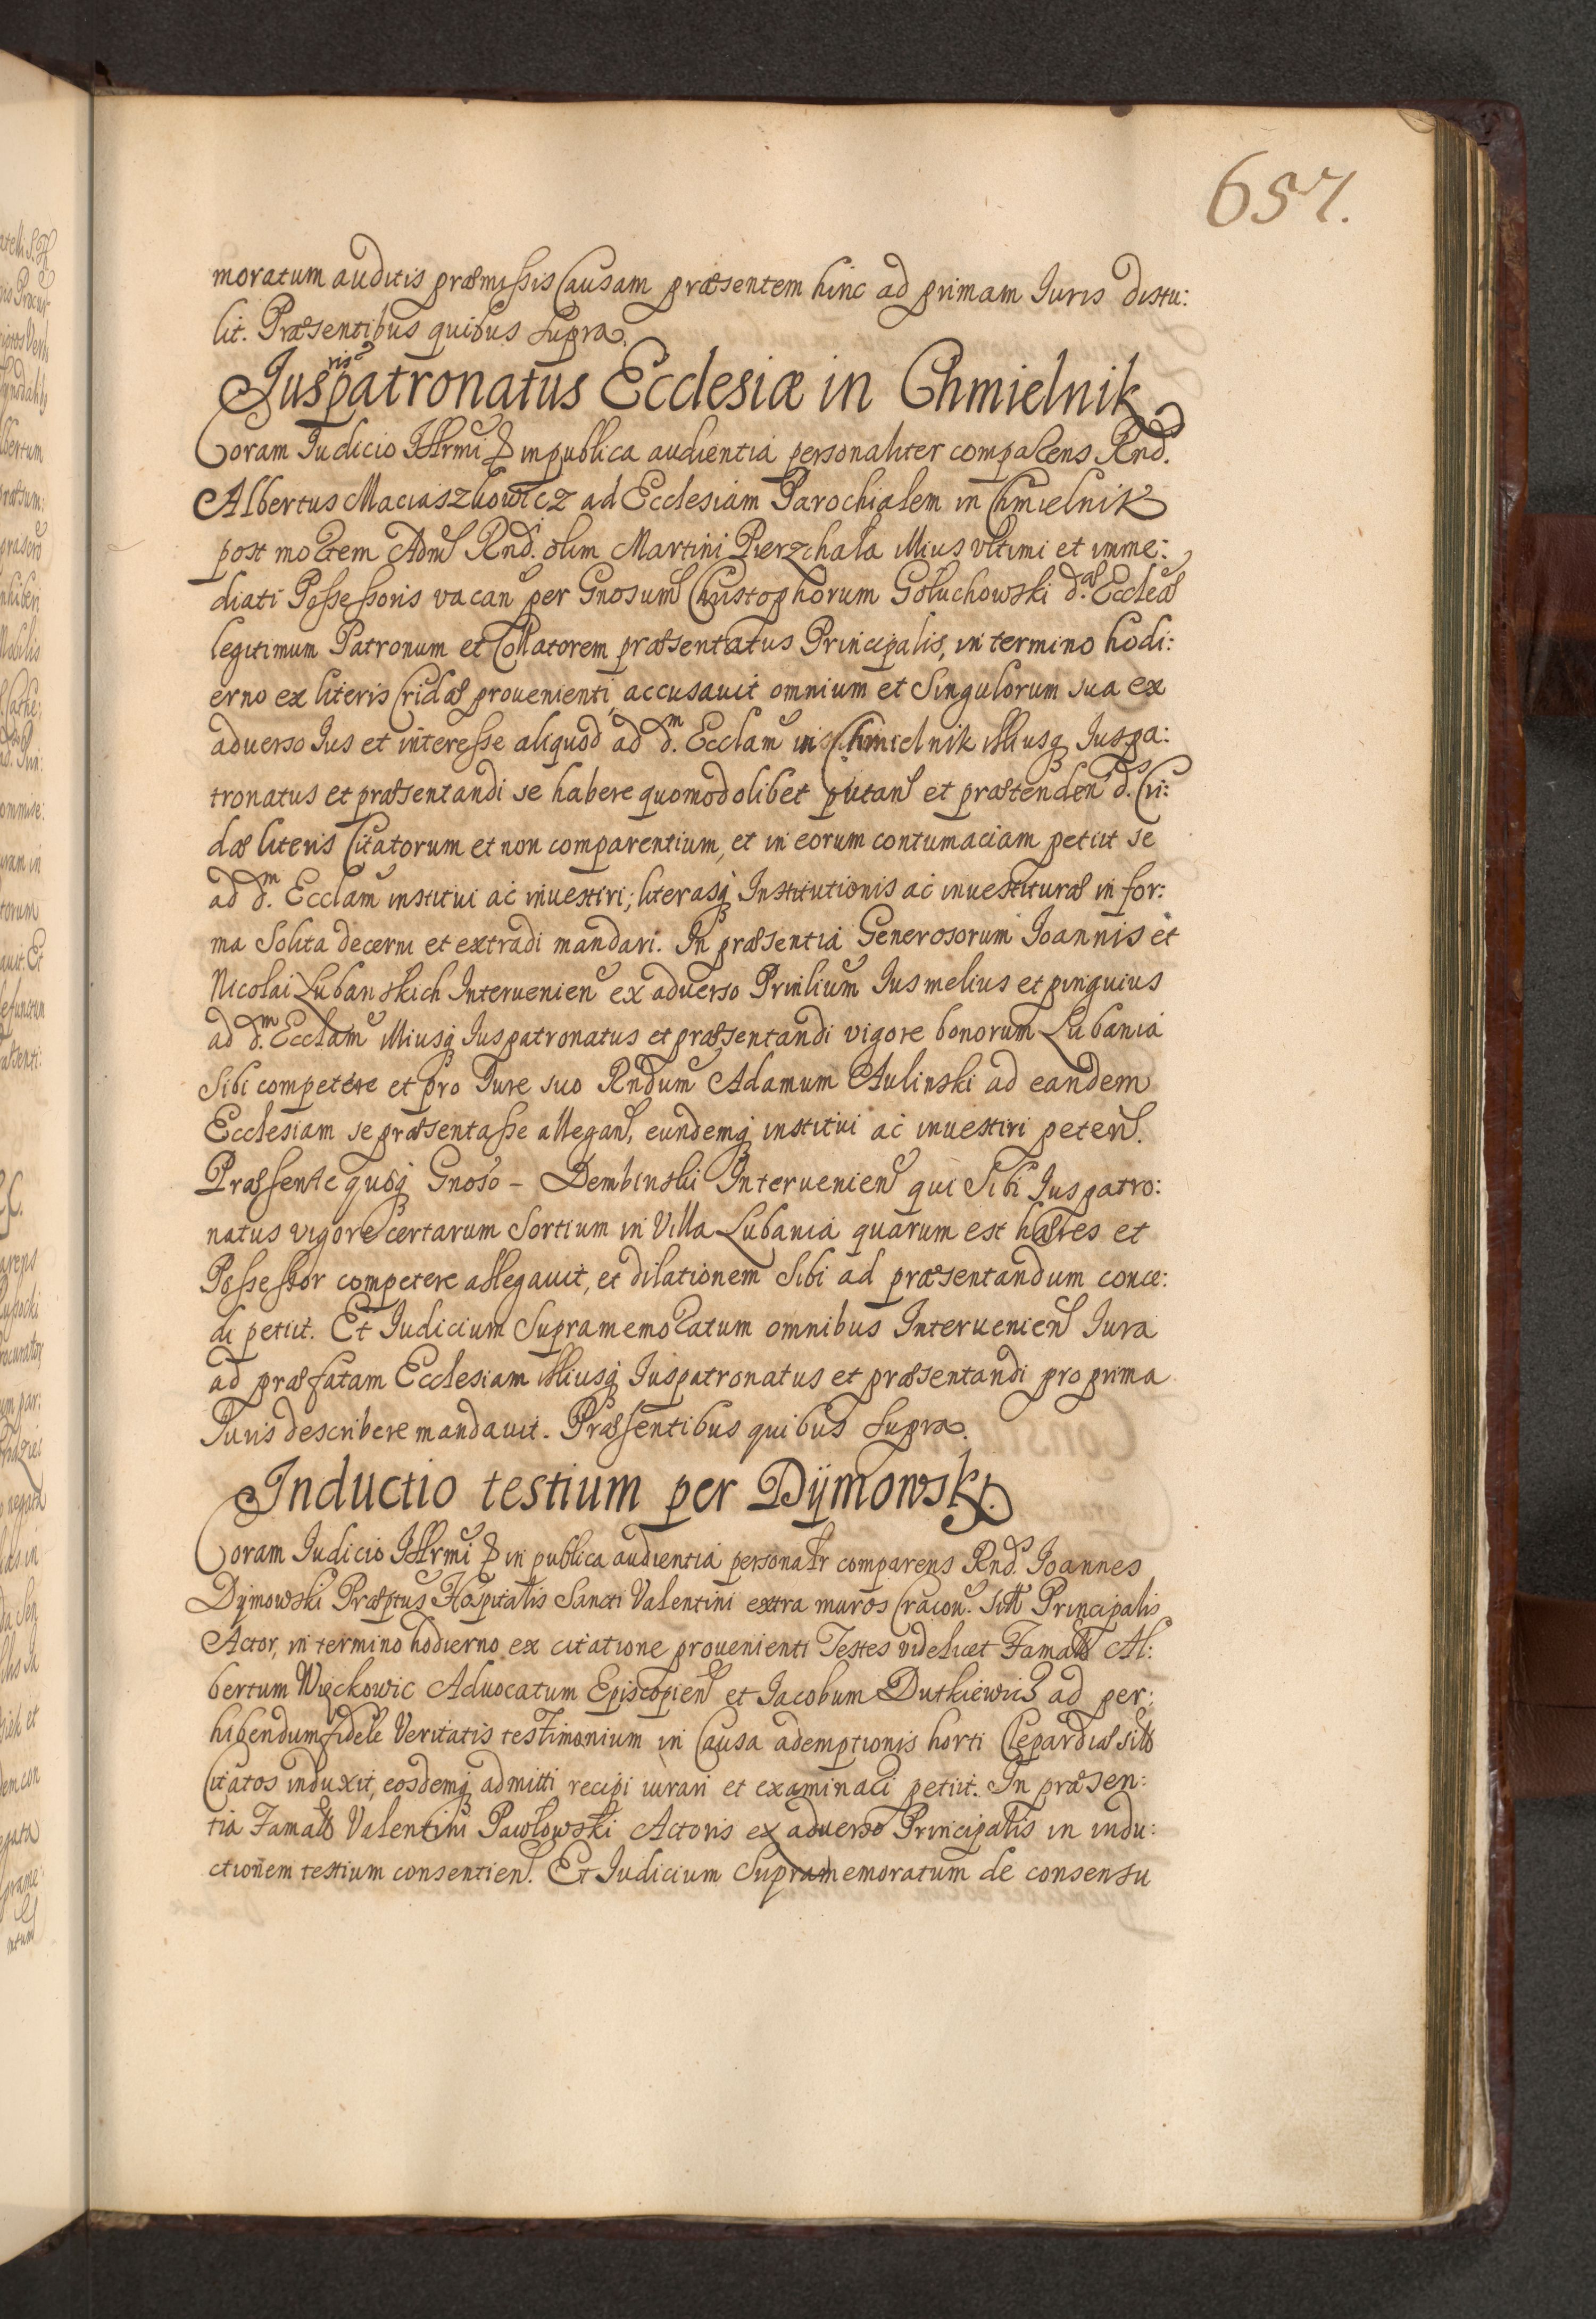 657.
moratum auditis præmissis Causam præsentem hinc ad primam Iuris distu:
lit. Præsentibus quibus supra.
Iurispatronatus Ecclesiæ in Chmielnik
Coram Iudicio Illrmi & in publica audientia personaliter comparens Rnd.
Albertus Maciaszkowicz ad Ecclesiam Parochialem in Chmielnik
post mortem Adm Rnd. olim Martini Pierzchała illius ultimi et imme:
diati Possessoris vacan per Gnosum Christophorum Gołuchowski d. Ecclæ
legitimum Patronum et Collatorem præsentatus Principalis, in termino hodi:
erno ex literis Cridæ provenienti, accusavit omnium et Singulorum sua ex
adverso Ius et interesse aliquod ad d.m Ecclam in Chmielnik illiusq Iuspa:
tronatus et præsentandi se habere quomodolibet putan et prætenden d.s Cri:
dæ literis Citatorum et non comparentium, et in eorum contumaciam petiit se
ad d.m Ecclam institui ac investiri; literasq Institutionis ac investituræ in for:
ma Solita decerni et extradi mandari. In præsentia Generosorum Ioannis et
Nicolai Lubanskich Intervenien ex adverso Prinlium Ius melius et pinguius
ad d.m Ecclam illiusq Iuspatronatus et præsentandi vigore bonorum Lubania
Sibi competere et pro Iure suo Rndum Adamum Aulinski ad eandem
Ecclesiam se præsentasse allegan, eundemq institui ac investiri peten.
Præsente quoq Gnoso – Dembinski Intervenien qui Sibi Iuspatro:
natus vigore certarum Sortium in Villa Lubania quarum est hæres et
Possessor competere allegavit, et dilationem Sibi ad præsentandum conce:
di petiit. Et Iudicium Supramemoratum omnibus Intervenien Iura
ad præfatam Ecclesiam illiusq Iuspatronatus et præsentandi pro prima
Iuris describere mandavit. Præsentibus quibus supra.
Inductio testium per Dÿmowski.
Coram Iudicio Illrmi & in publica audientia personalr comparens Rnd. Ioannes
Dymowski Præptus Hospitalis Sancti Valentini extra muros Cracov. Principalis
Actor, in termino hodierno ex citatione provenienti Testes videlicet Al:
bertum Więckowic Advocatum Episcopien et Iacobum Dutkiewicz ad per:
hibendum fidele Veritatis testimonium in Causa ademptionis horti Clepardiæ
Citatos induxit, eosdemq admitti recipi iurari et examinari petiit. In præsen:
tia Valentini Pawłowski Actoris ex adverso Principalis in indu:
ctionem testium consentien. Et Iudicium Supramemoratum de consensu